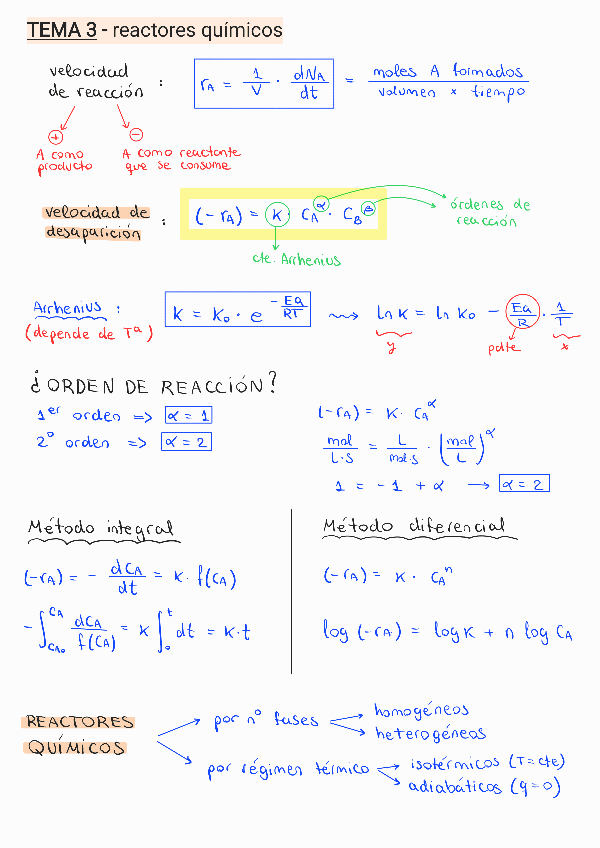 TEMA 3 - reactores químicos
velocidad de reacción : rA = 1/V · dNA/dt = moles A formados / volumen × tiempo
⊕ ⊖
A como producto
A como reactante que se consume
velocidad de desaparición : (-rA) = K · CA^α · CB^β
órdenes de reacción
cte. Arrhenius
Arrhenius : K = K0 · e^(-Ea/RT) ⇝ ln K = ln K0 - Ea/R · 1/T
(depende de Tª)
y pdte x
¿ORDEN DE REACCIÓN?
1er orden => α = 1
2º orden => α = 2
(-rA) = K · CA^α
mol/L·s = L/mol·s · (mol/L)^α
1 = -1 + α → α = 2
Método integral
(-rA) = - dCA/dt = K · f(CA)
-∫CA0^CA dCA/f(CA) = K ∫0^t dt = K·t
Método diferencial
(-rA) = K · CA^n
log (-rA) = log K + n log CA
REACTORES QUÍMICOS
por nº fases
homogéneos
heterogéneos
por régimen térmico
isotérmicos (T=cte)
adiabáticos (q=0)